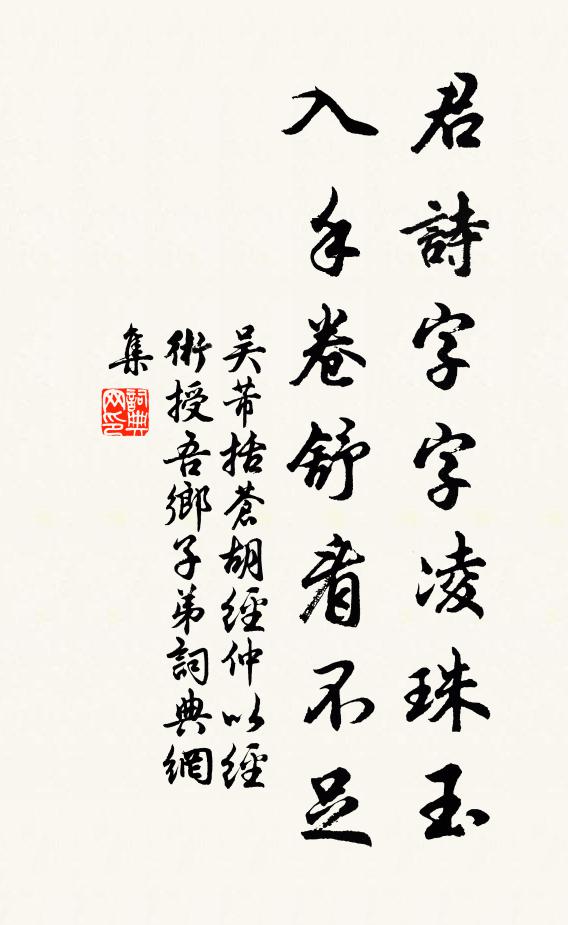 君詩字字凌珠玉
入手卷舒看不足
吳芾括蒼胡經仲以經
術授吾鄉子弟詞典網
集
詞典網印